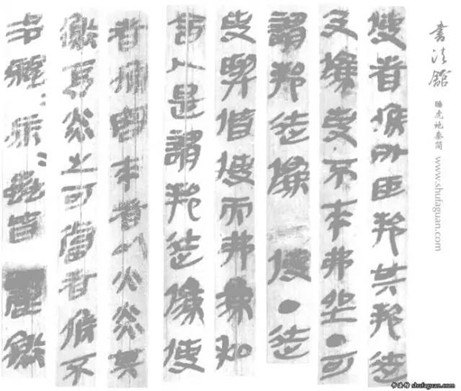 使者侯外臣邦其邦徒
及偽吏不來弗坐•可
謂邦徒偽使•徒
吏與偕使而弗為私
舍人是謂邦徒偽使
者侯客來者以火炎其
衡厄炎之可當者侯不
治騷=馬=蟲皆麗衡
書法館
睡虎地秦簡 www.shufaguan.com
书法馆 shufaguan.com